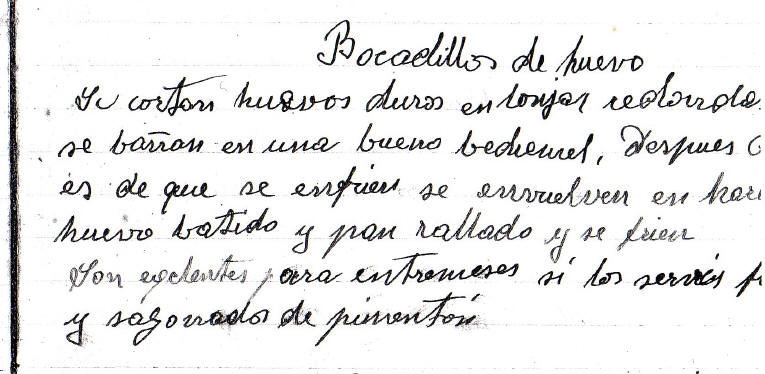 Bocadillos de huevo
Se cortan huevos duros en lonjas redonda
se bañan en una bueno bechemel, despues
es de que se enfrien se envuelven en hari
huevo batido y pan rallado y se frien
Son exelentes para entremeses si los servis f
y sazonrados de pimentón